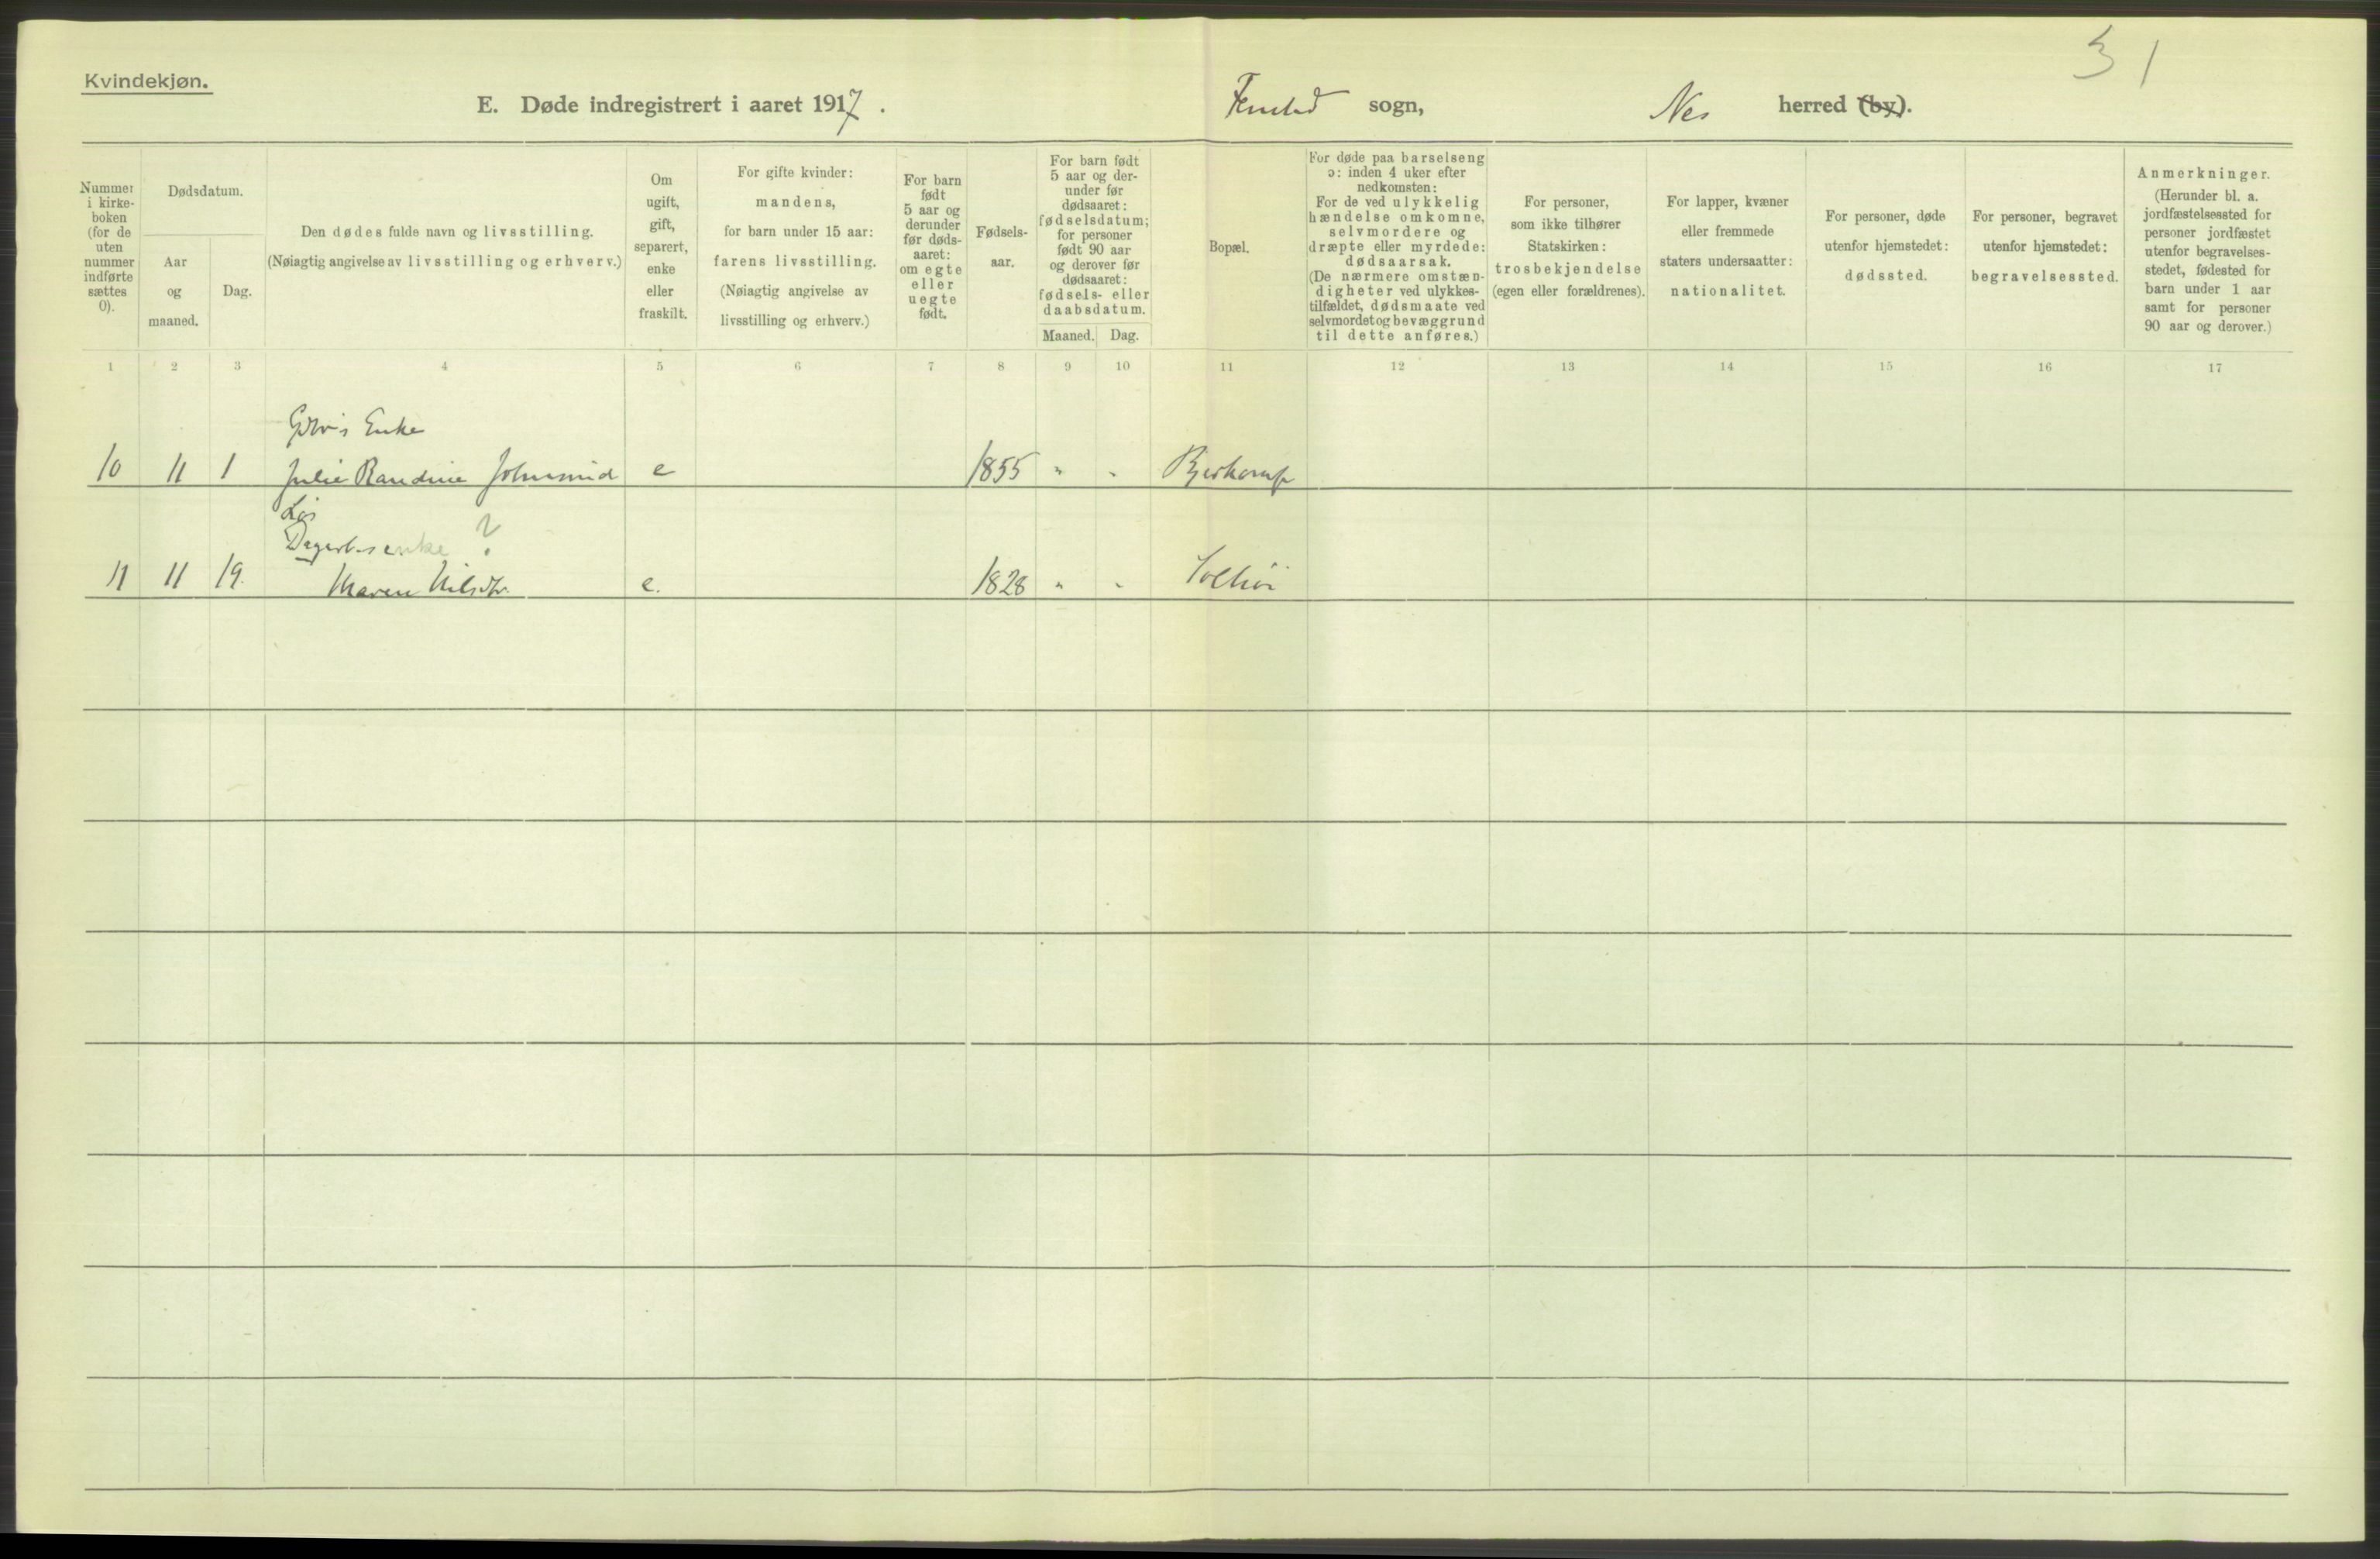 Kvindekjøn.
31
E. Døde indregistrert i aaret 1917. Fenstad sogn, Nes herred (by).
Nummer i kirkeboken (for de uten nummer indførte sættes 0).
Dødsdatum.
Aar og maaned.
Dag.
Den dødes fulde navn og livsstilling.
(Nøiagtig angivelse av livsstilling og erhverv.)
Om ugift, gift, separert, enke eller fraskilt.
For gifte kvinder: mandens, for barn under 15 aar: farens livsstilling. (Nøiagtig angivelse av livsstilling og erhverv.)
For barn født 5 aar og derunder før dødsaaret: om egte eller uegte født.
Fødselsaar.
For barn født 5 aar og derunder før dødsaaret: fødselsdatum; for personer født 90 aar og derover før dødsaaret: fødsels- eller daabsdatum.
Maaned. Dag.
Bopæl.
For døde paa barselseng ɔ: inden 4 uker efter nedkomsten: For de ved ulykkelig hændelse omkomne, selvmordere og dræpte eller myrdede: dødsaarsak. (De nærmere omstændigheter ved ulykkestilfældet, dødsmaate ved selvmordet og bevæggrund til dette anføres.)
For personer, som ikke tilhører Statskirken: trosbekjendelse (egen eller forældrenes).
For lapper, kvæner eller fremmede staters undersaatter: nationalitet.
For personer, døde utenfor hjemstedet: dødssted.
For personer, begravet utenfor hjemstedet: begravelsessted.
Anmerkninger. (Herunder bl. a. jordfæstelsessted for personer jordfæstet utenfor begravelsesstedet, fødested for barn under 1 aar samt for personer 90 aar og derover.)
1 2 3 4 5 6 7 8 9 10 11 12 13 14 15 16 17
Enke
10 11 1 Julie Randine Johnsrud e 1855 " "
Løs
enke ?
11 11 19. Maren Nilsdtr. e. 1828 " " Solhöi